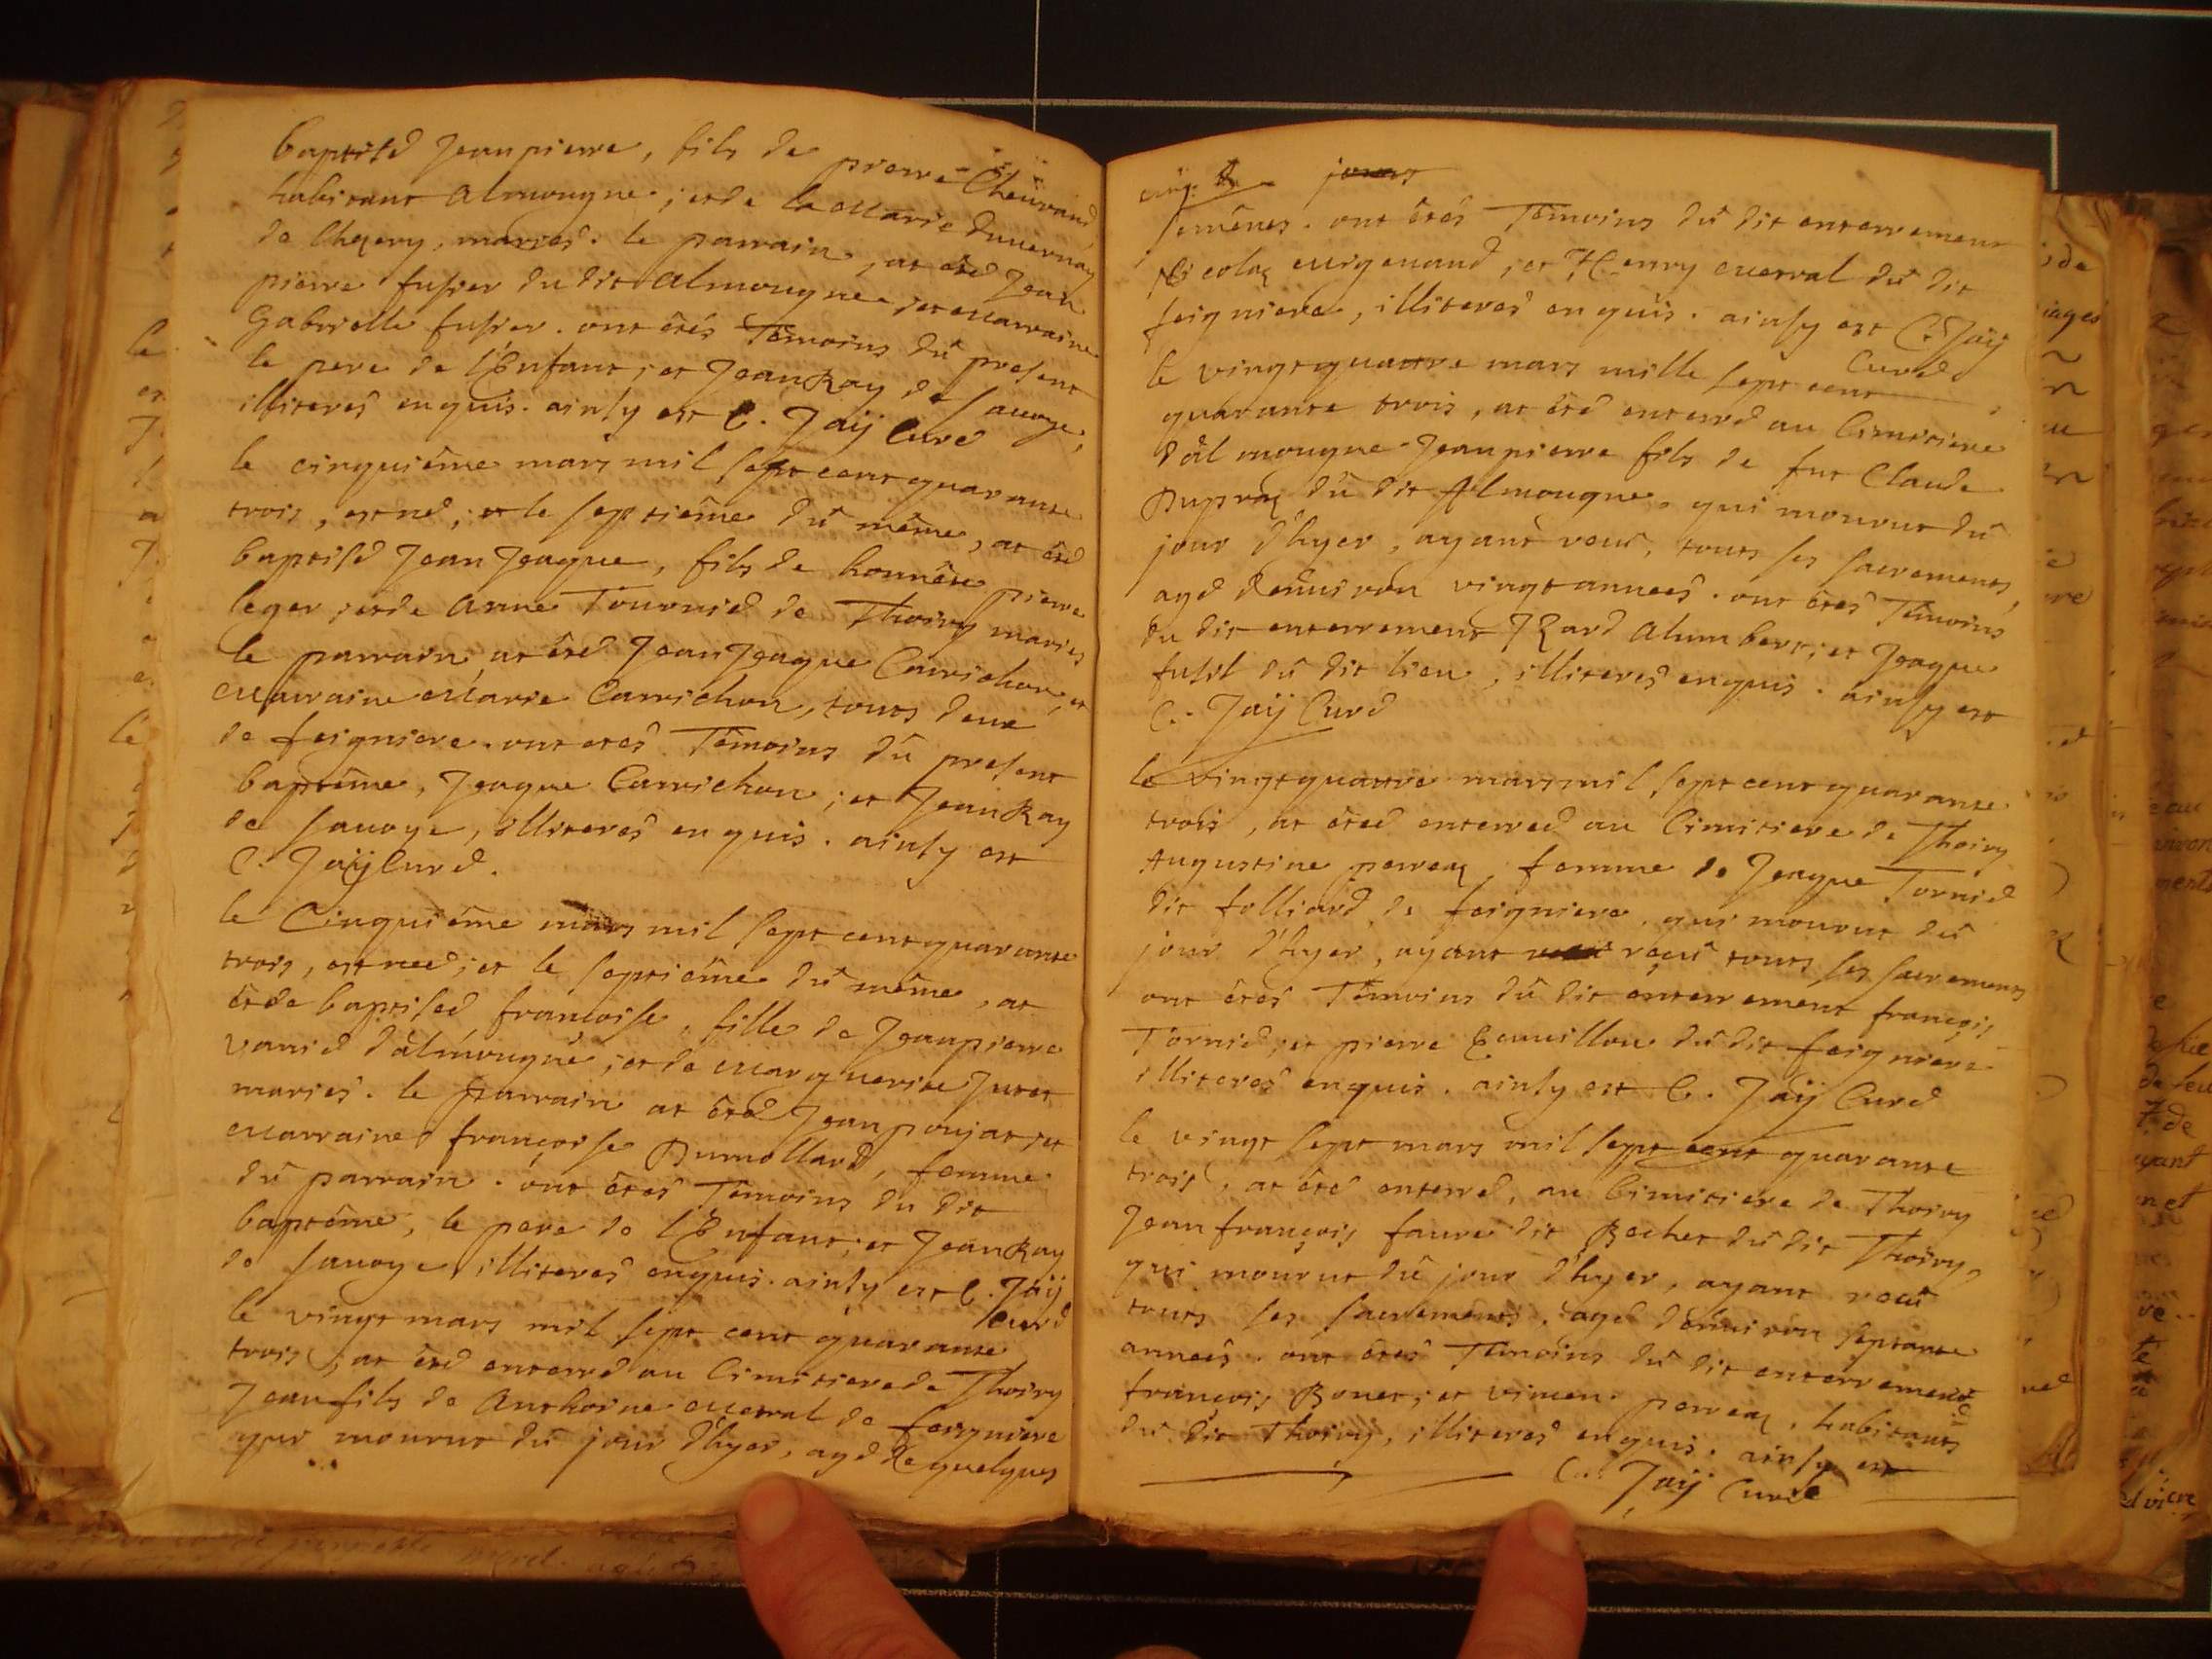 baptisé Jeanpierre, fils de pierre
habitant Almougne; et de la Marie Duuernay
de Cheory, mariés. le parrain, at été Jean
pierre fusier du dit Almougne; et Marraine
Gabrielle fusier. ont étés Témoins dû present
le pere de l'Enfant; et Jean Ray de sauoye,
illiterés enquis. ainsy est C. Jaÿ Curé
le cinquiême mars mil sept cent quarante
trois, est né; et le septiême dû même, at été
baptisé Jean Jeaque, fils de honnête pierre
leger; et de Anne Tournié de Thoiry mariés
le parrain at été Jean Jeaque Carrichon; et
Marraine Marie Carrichon, touts deux
de feigniere. ont etés Témoins dû present
baptême, Jeaque Carrichon; et Jean Ray
de sauoye, illiterés enquis. ainsy est
C. Jaÿ Curé.
le Cinquiéme mars mil sept cent quarante
trois, est neé; et le septiême dû même, at
étée baptiseé francoise, fille de Jeanpierre
vanié d'âlmougne; et de Marguerite Juret
mariés. le parrain at été Jean poujat; et
Marraine françoise Dumollard, femme
dû parrain. ont étés Témoins du dit
baptême, le pere de l'Enfant; et Jean Ray
de sauoye, illiterés enquis. ainsy est C. Jaÿ
Curé
le vingt mars mil sept cent quarante
trois, at été enterré au Cimitiere de Thoiry
Jean fils de Anthoine Merral de feigniere
qui mourut dû jour d'hyer, agé de quelques
cinq jours
semênes. ont étés Témoins dû dit enterrement
Nicolaz Migeuand; et Henry Merral dû dit
feigniere, illiterés enquis. ainsy est C. Jaÿ
Curé
le vingtquattre mars mille sept cent
quarante trois, at été enterré au Cimitiere
d'âlmougne Jeanpierre fils de fut Claude
Dupraz dû dit Almougne, qui mourut dû
jour d'hyer, ayant reçû, touts ses sacrements,
agé d'enuiron vingt anneés. ont étés Témoins
du dit enterrement Alumbert; et Jeaque
fusil dû dit lieu, illiterés enquis. ainsy est
C. Jaÿ Curé
le vingtquattre mars mil sept cent quarante
trois, at éteé enterreé au Cimitiere de Thoiry
Augustine perreaz femme de Jeaque Tornié
dit folliard de feigniere, qui mourut dû
jour d'hyer, ayant reçû touts ses sacrements
ont étés Témoins dû dit enterrement françois
Tornié; et pierre dû dit feigniere
illiterés enquis. ainsy est C. Jaÿ Curé
le vingt sept mars mil sept cent quarante
trois, at été enterré, au Cimitiere de Thoiry
Jean françois faure dit Bechet dû dit Thoiry,
qui mourut dû jour d'hyer, ayant reçû
touts ses sacrements, agé d'enuiron septante
anneés. ont étés Témoins dû dit enterrement
françois Bonet; et vincen perreaz, habitants
dû dit Thoiry, illiterés enquis. ainsy est
C. Jaÿ Curé